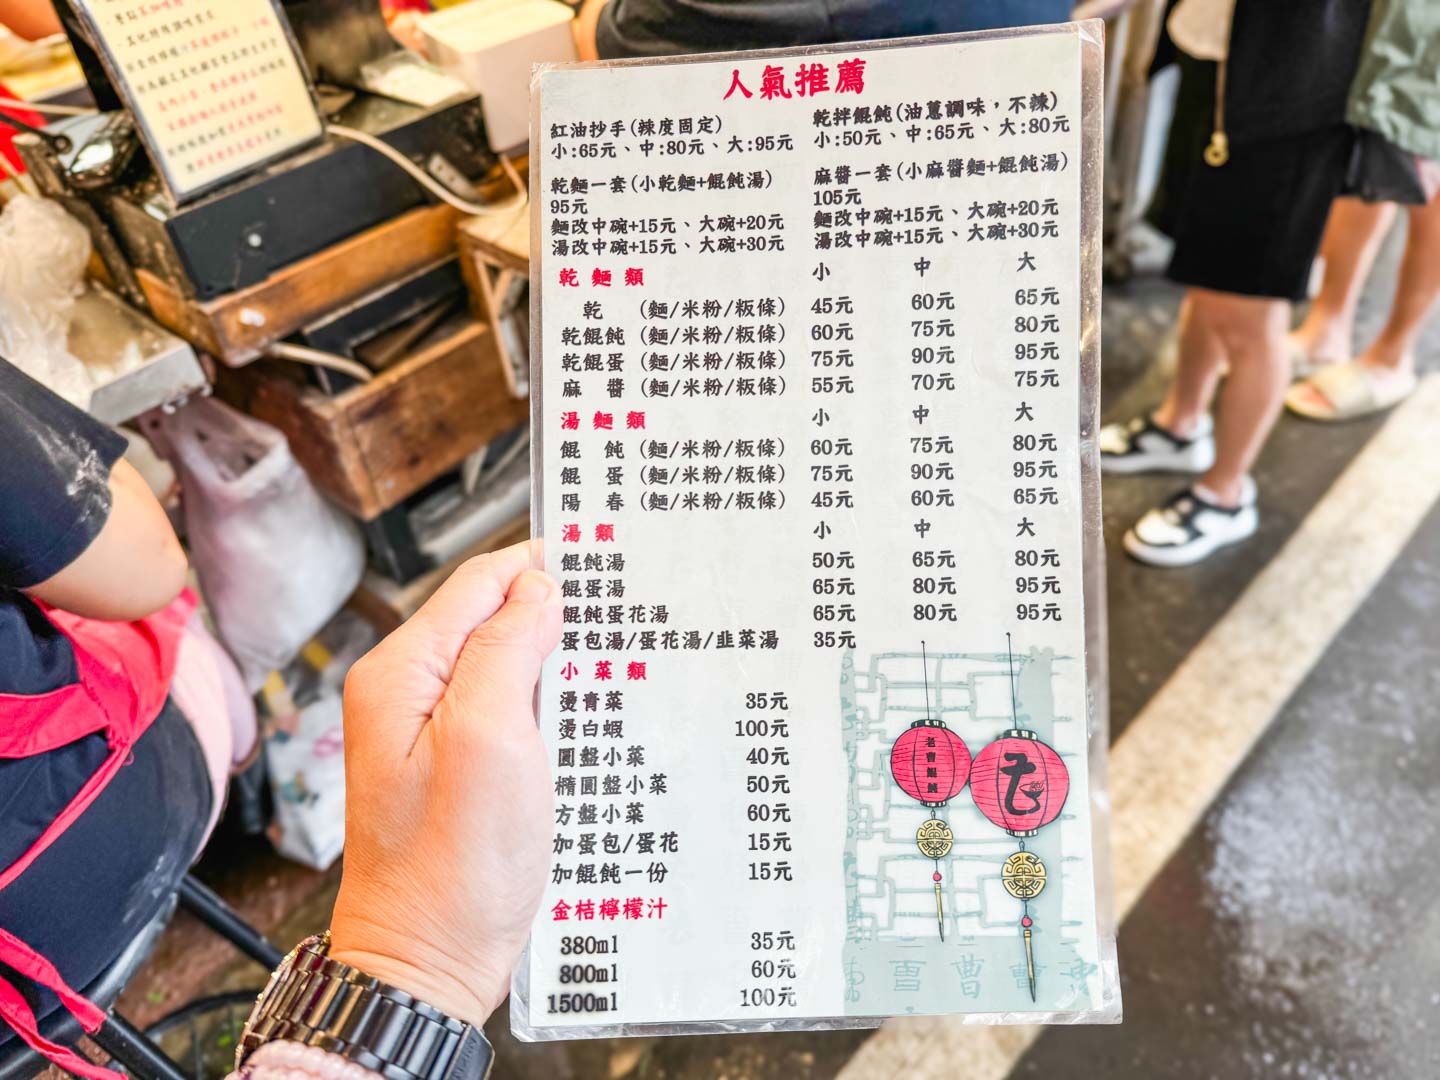 人氣推薦
紅油抄手(辣度固定)
小:65元、中:80元、大:95元
乾拌餛飩(油蔥調味，不辣)
小:50元、中:65元、大:80元
乾麵一套(小乾麵+餛飩湯)
95元
麵改中碗+15元、大碗+20元
湯改中碗+15元、大碗+30元
麻醬一套(小麻醬麵+餛飩湯)
105元
麵改中碗+15元、大碗+20元
湯改中碗+15元、大碗+30元
乾麵類 小 中 大
乾 (麵/米粉/粄條) 45元 60元 65元
乾餛飩 (麵/米粉/粄條) 60元 75元 80元
乾餛蛋 (麵/米粉/粄條) 75元 90元 95元
麻 醬 (麵/米粉/粄條) 55元 70元 75元
湯麵類 小 中 大
餛 飩 (麵/米粉/粄條) 60元 75元 80元
餛 蛋 (麵/米粉/粄條) 75元 90元 95元
陽 春 (麵/米粉/粄條) 45元 60元 65元
湯類 小 中 大
餛飩湯 50元 65元 80元
餛蛋湯 65元 80元 95元
餛飩蛋花湯 65元 80元 95元
蛋包湯/蛋花湯/韭菜湯 35元
小菜類
燙青菜 35元
燙白蝦 100元
圓盤小菜 40元
橢圓盤小菜 50元
方盤小菜 60元
加蛋包/蛋花 15元
加餛飩一份 15元
金桔檸檬汁
380ml 35元
800ml 60元
1500ml 100元
老曹餛飩